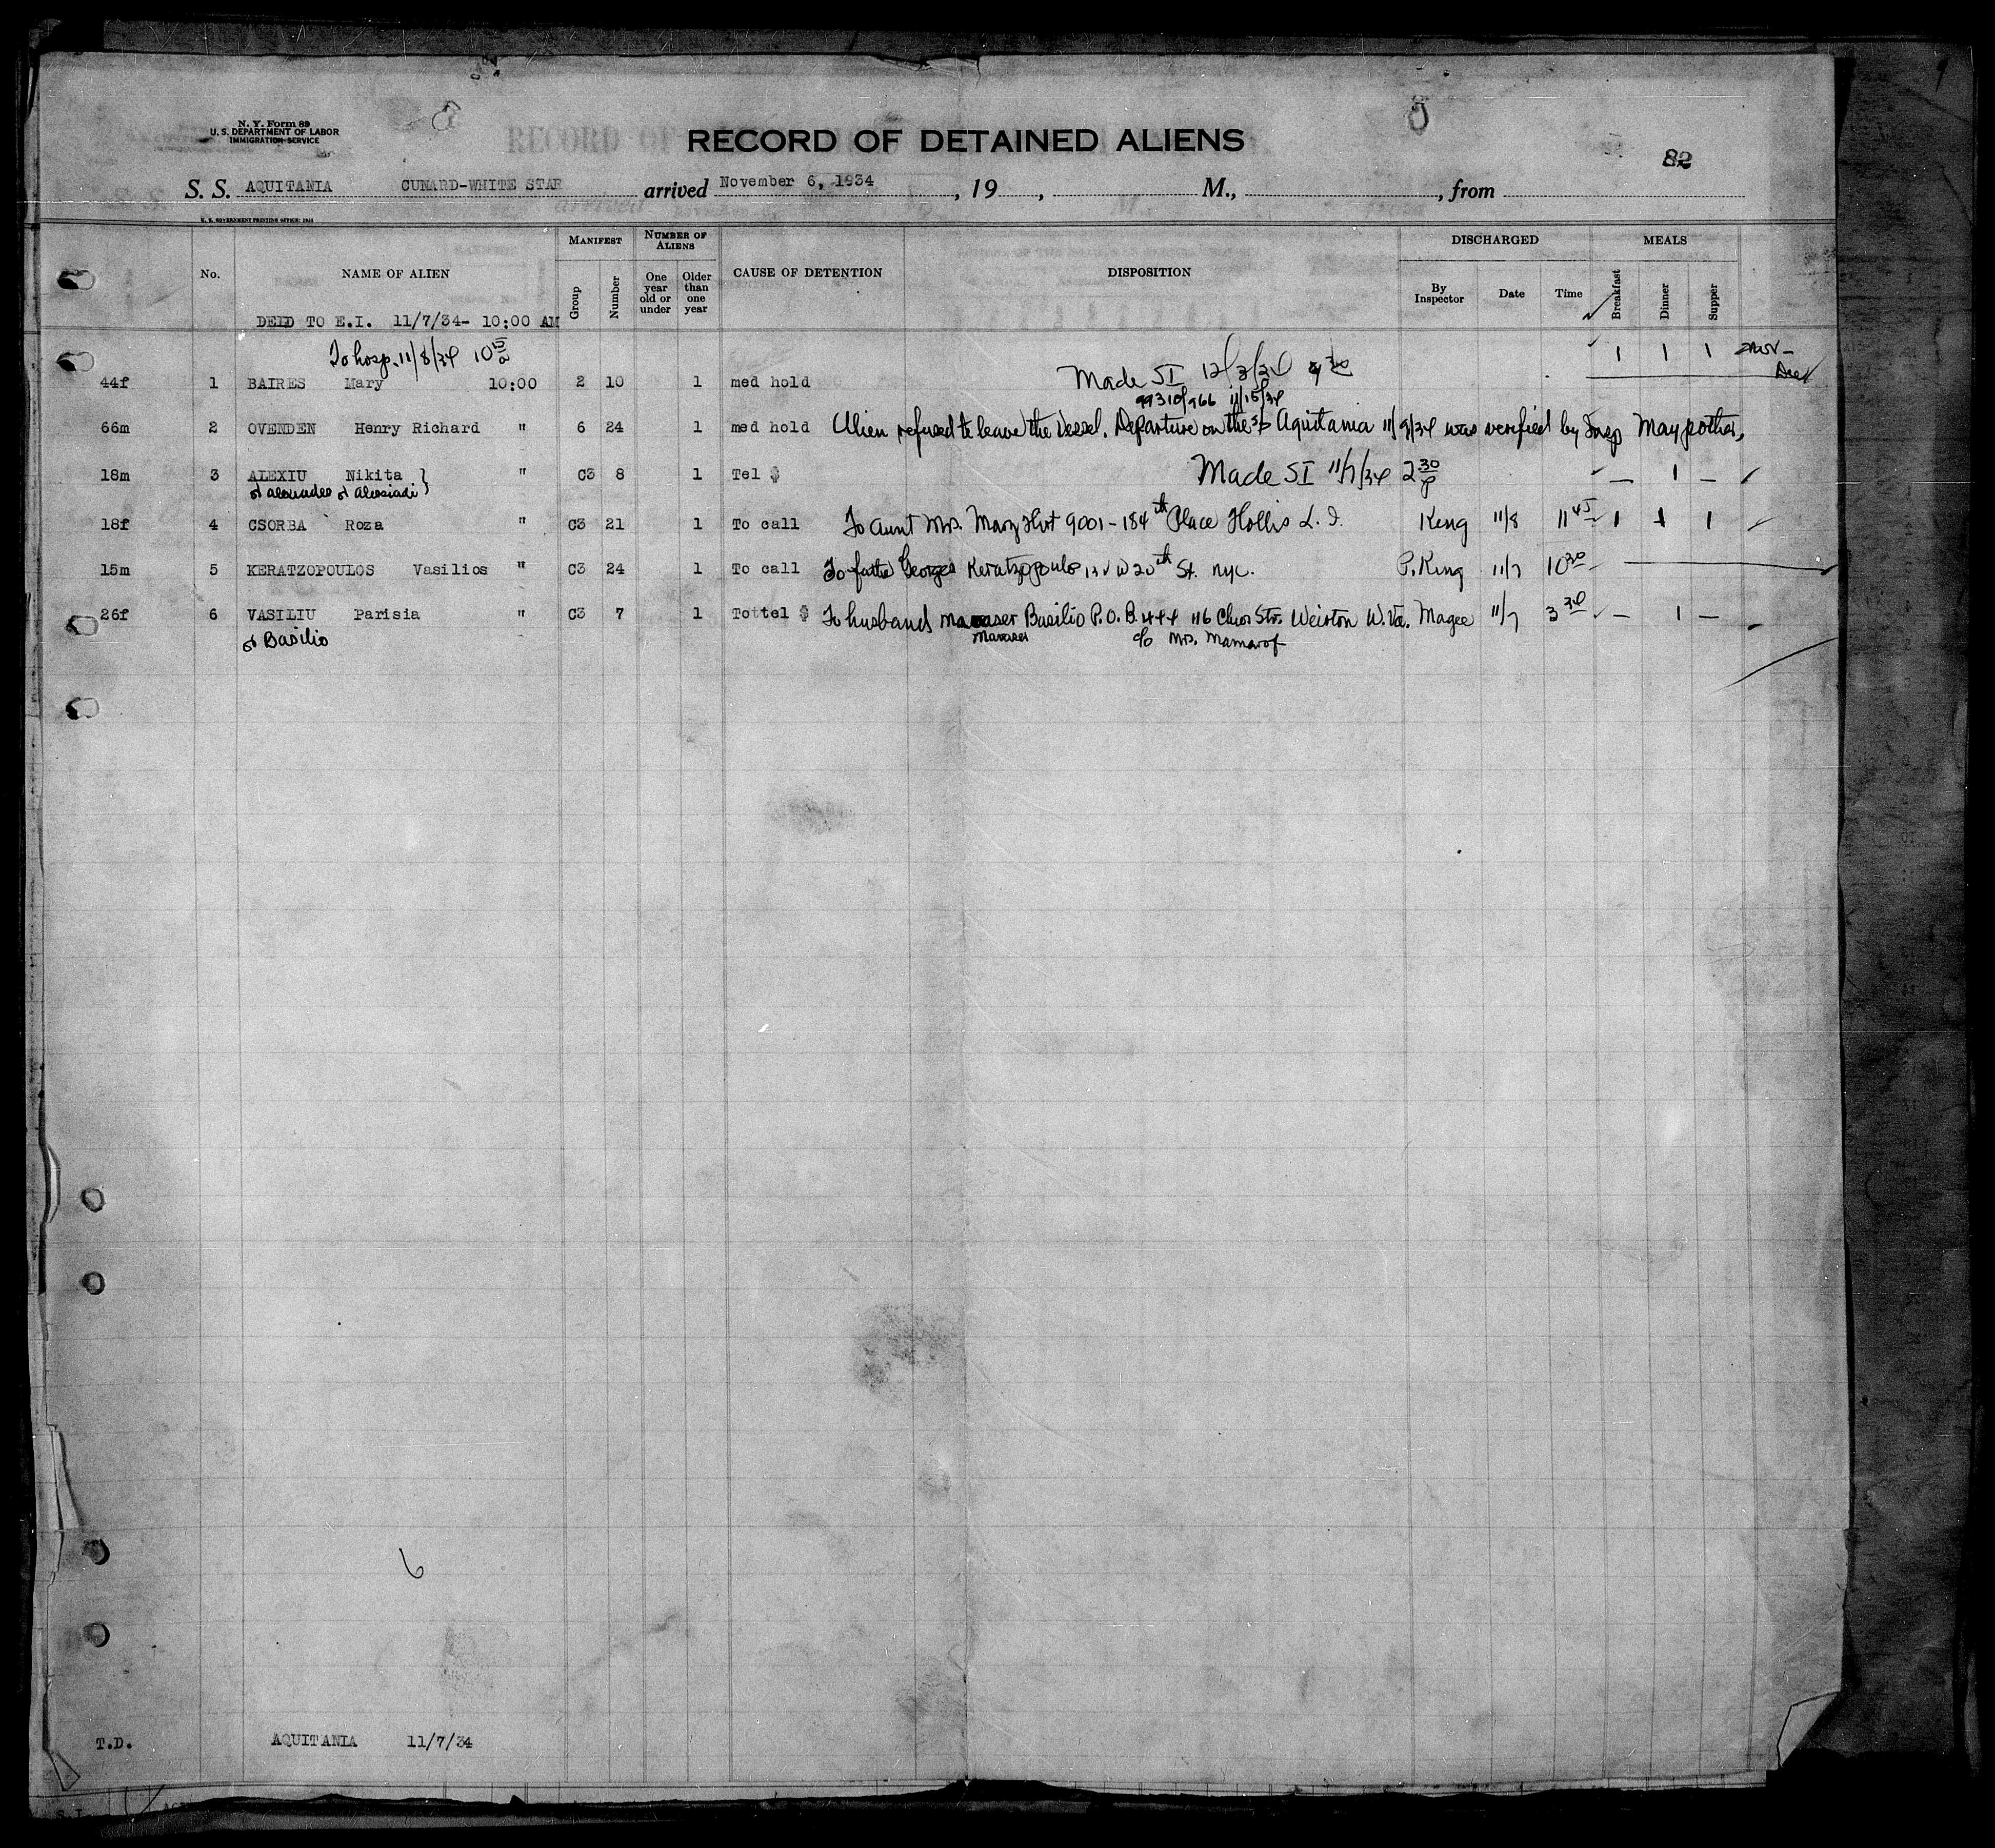 N. Y. Form 89
U. S. DEPARTMENT OF LABOR
IMMIGRATION SERVICE
RECORD OF DETAINED ALIENS
82
S. S. AQUITANIA CUNARD-WHITE STAR arrived November 6, 1934, 19, M., from
U. S. GOVERNMENT PRINTING OFFICE:
No. NAME OF ALIEN MANIFEST Group Number NUMBER OF ALIENS One year old or under Older than one year CAUSE OF DETENTION DISPOSITION DISCHARGED By Inspector Date Time MEALS Breakfast Dinner Supper
DELD TO E.I. 11/7/34- 10:00 AM
To hosp. 11/8/34 10 15 a 1 1 1
44f 1 BAIRES Mary 10:00 2 10 1 med hold Made SI 12/3/34 9 30
99310/966 11/15/34
66m 2 OVENDEN Henry Richard " 6 24 1 med hold Alien refused to leave the Vessel. Departure on the SS Aquitania 11/9/34 was verified by Insp Maypother,
18m 3 ALEXIU Nikita } " C3 8 1 Tel $ Made SI 11/7/34 2 30 p — 1 —
18f 4 CSORBA Roza " C3 21 1 To call To Aunt Mrs. Mary 9001-184th Place Hollis L. I. King 11/8 11 45 1 1 1
15m 5 KERATZOPOULOS Vasilios " C3 24 1 To call To father George Keratzopoulo W 20th St. nyc. P. King 11/7 10 30
26f 6 VASILIU Parisia " C3 7 1 Tottel $ To husband Basilio P.O. B. 444 116 Str. Weirton W. Va. Magee 11/7 3 30 — 1 —
or Basilio c/o Mrs. Mamarof
6
T.D. AQUITANIA 11/7/34